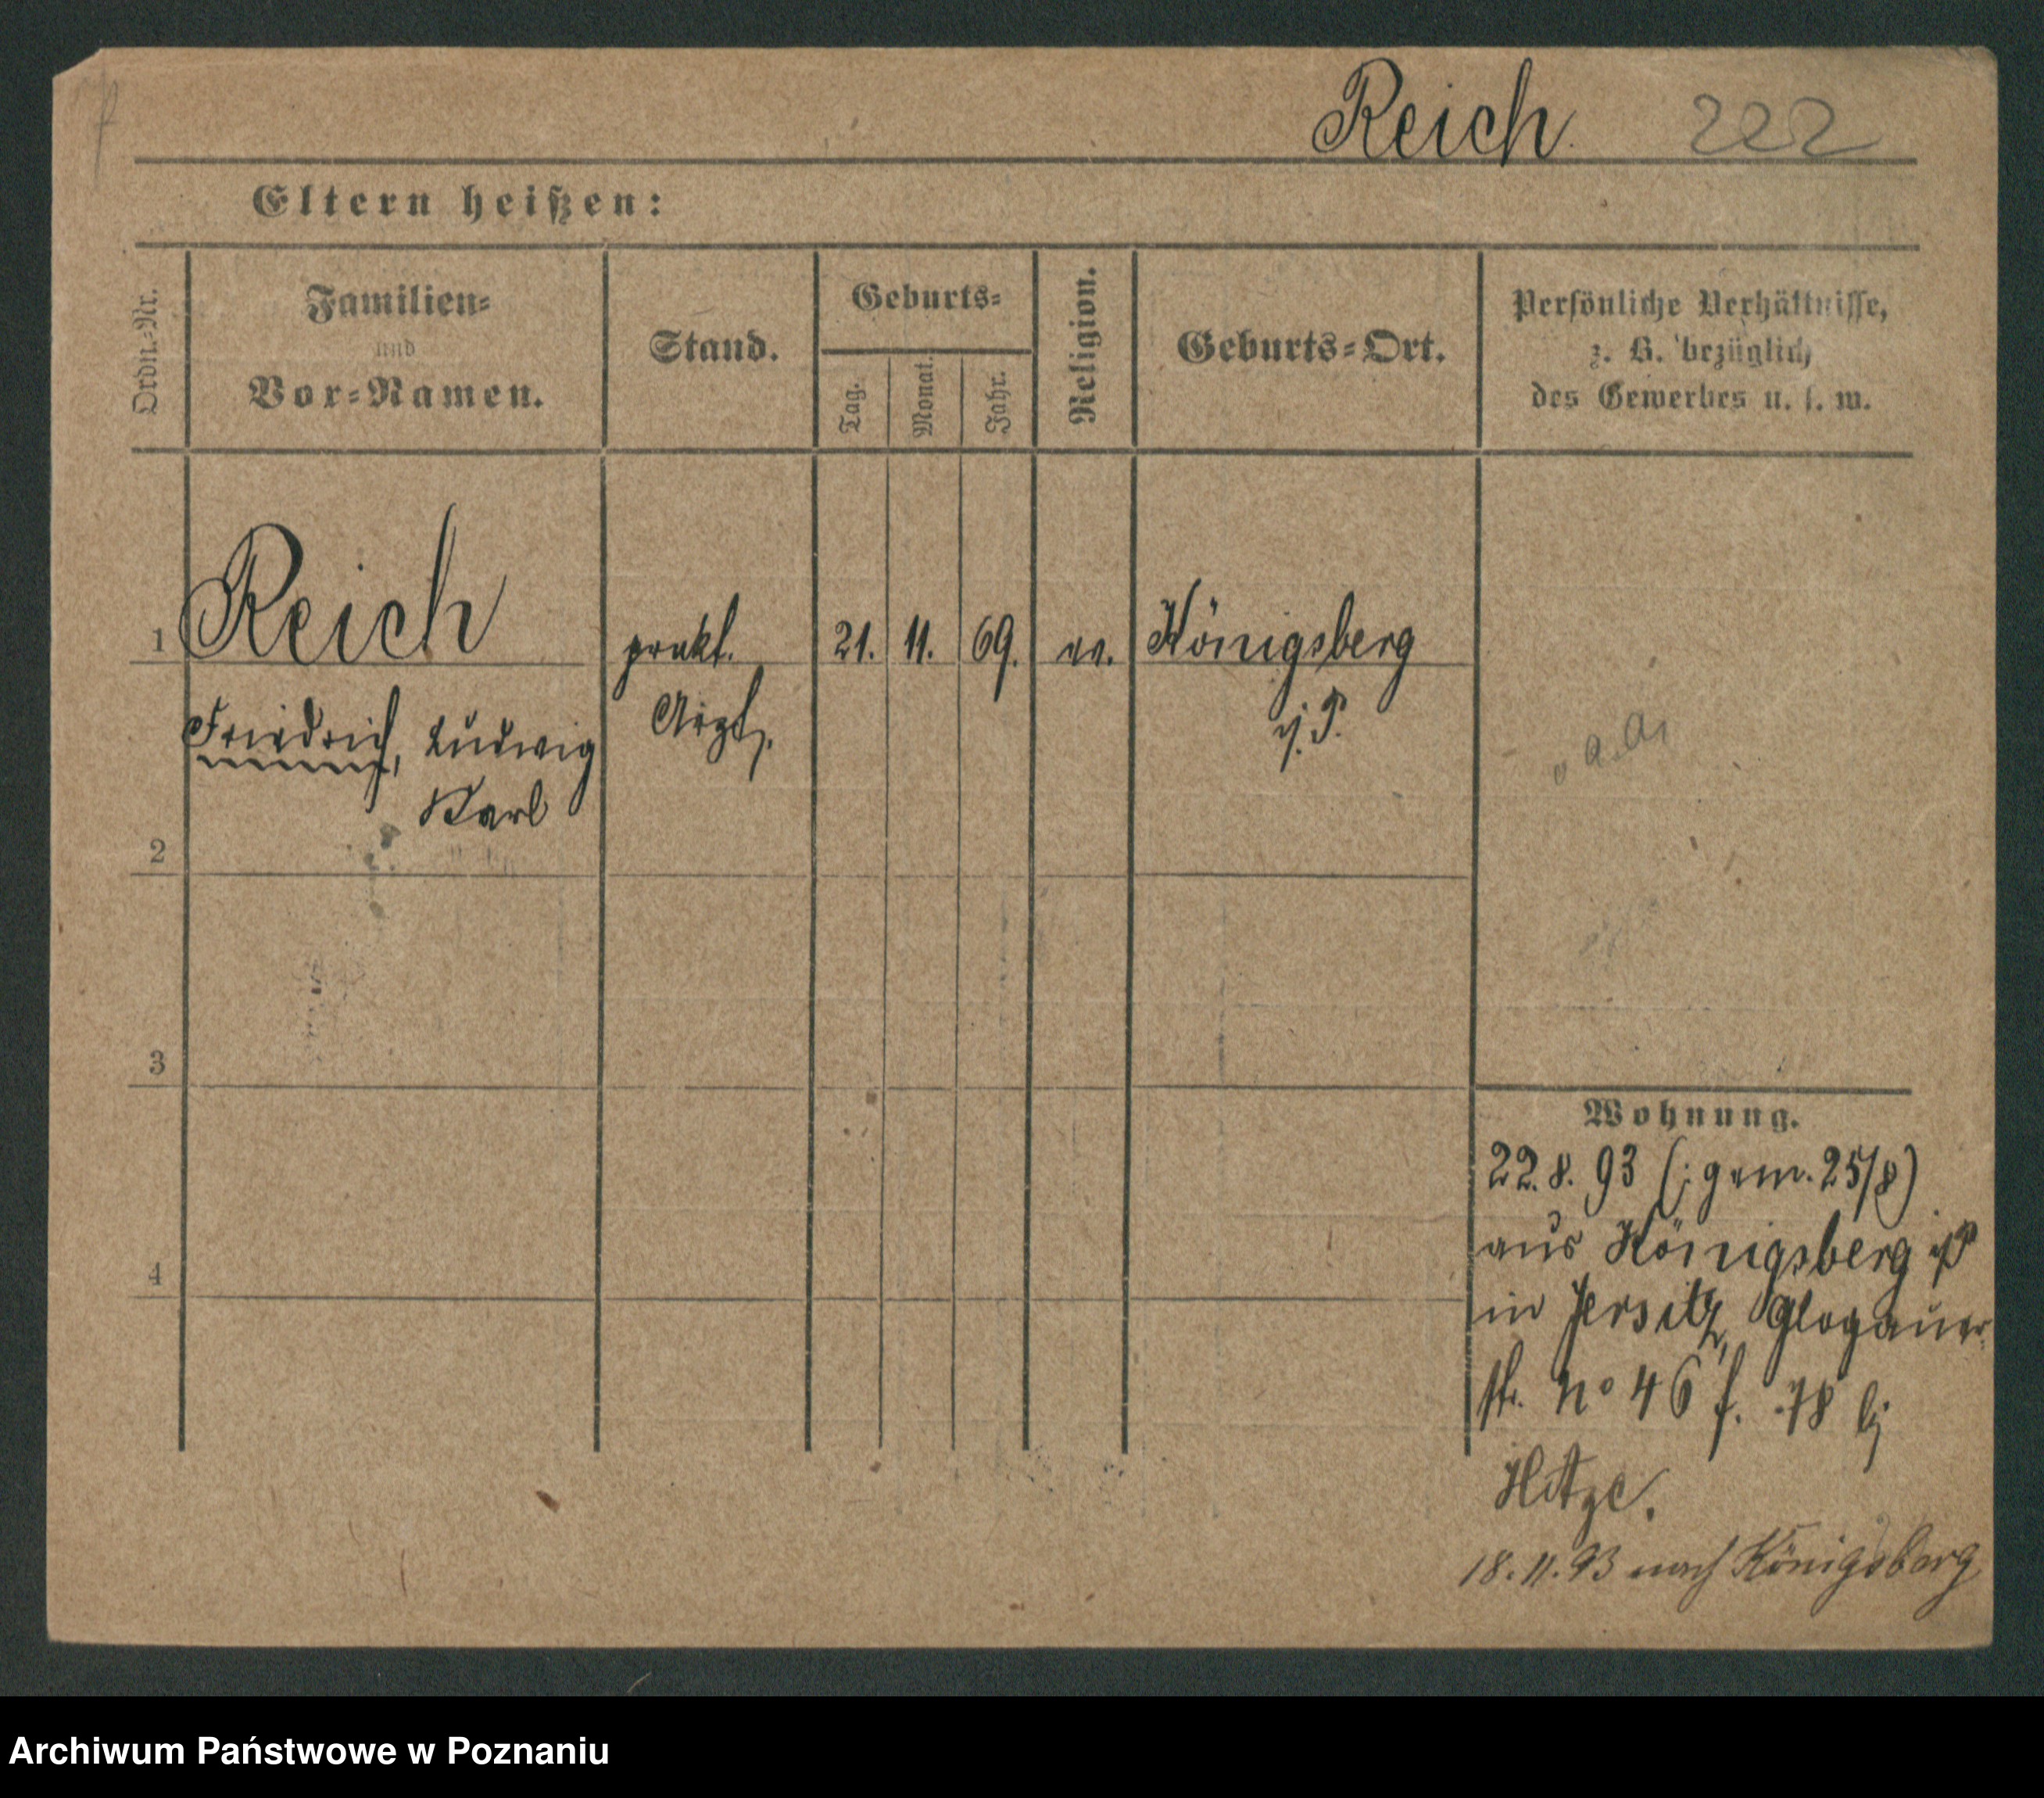 Reich. 222
Eltern heißen:
Ordn.-Nr.
Familien-
und
Vor-Namen.
Stand.
Geburts-
Tag.
Monat.
Jahr.
Religion.
Geburts-Ort.
Persönliche Verhältnisse,
z. B. bezüglich
des Gewerbes u. s. w.
1 Reich prakt. 21. 11. 69. ev. Königsberg
Friedrich, Ludwig Arzt, i. P.
Karl
2
3
4
Wohnung.
22. 8. 93 (: gem. 25/8)
aus Königsberg i/P
in Jersitz, Glogauer
str. No 46 f. 78 bj
Hitze.
18. 11. 93 nach Königsberg
Archiwum Państwowe w Poznaniu